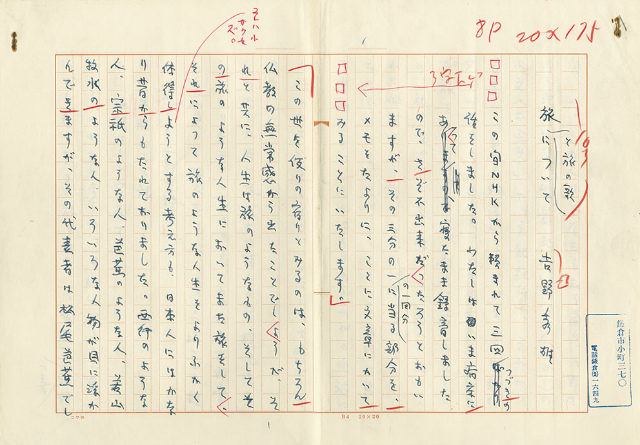 8P 20×175
旅と旅の歌
について
吉野秀雄
鎌倉市小町三七〇
電話鎌倉 一六四九
3字下ゲ
この間NHKから頼まれて三回つづきの
ありますので寝たまま録音しました
ので、さぞ不出来だったろうとおもい
ますが、その三分の一に当る部分を、
の一回分
メモをたよりに、ここに文章にかいて
みることにいたします。
この世を仮りの宿りとみるのは、もちろん
仏教の無常感から出たことでしょうが、そ
れと共に、人生は旅のようなもの、そしてそ
の旅のような人生においてまた旅をして、
それによって旅のような人生をよりふかく
体得しようとする考え方も、日本人にはかな
り昔からもたれておりました。西行のような
人、宗祇のような人、芭蕉のような人、
牧水のような人、いろいろな人物が目に浮か
んできますが、その代表者は松尾芭蕉でし
B4 20×20